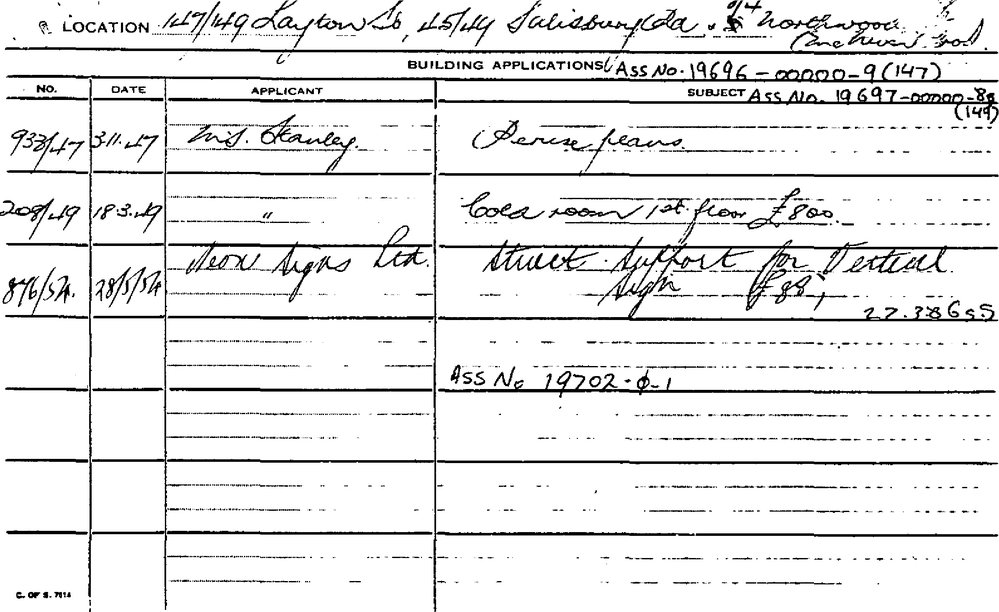 LOCATION 147/149 Layton St, 45/49 Salisbury Rd. & 2/4 Northwood
BUILDING APPLICATIONS ASS No. 19696-00000-9 (147)
NO. DATE APPLICANT SUBJECT ASS No. 19697-00000-8
(149)
938/47 3.11.47 M.S. Stanley. Peruse plans.
208/49 18.3.49 " Cold room 1st floor £800.
876/54. 28/5/54 Neon Signs Ltd. Struct. Support for Vertical
Sign £88,
ASS No 19702-0-1
C. OF S. 7514